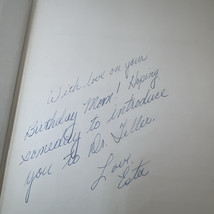 With love on your
Birthday Mom! Hoping
someday to introduce
you to Dr. Teller.
Love,
Esta